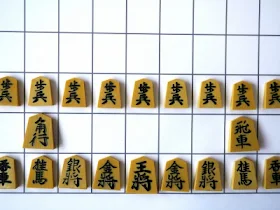 歩兵 歩兵 歩兵 歩兵 歩兵 歩兵 歩兵 歩兵 歩兵
角行 飛車
香車 桂馬 銀将 金将 王将 金将 銀将 桂馬 香車